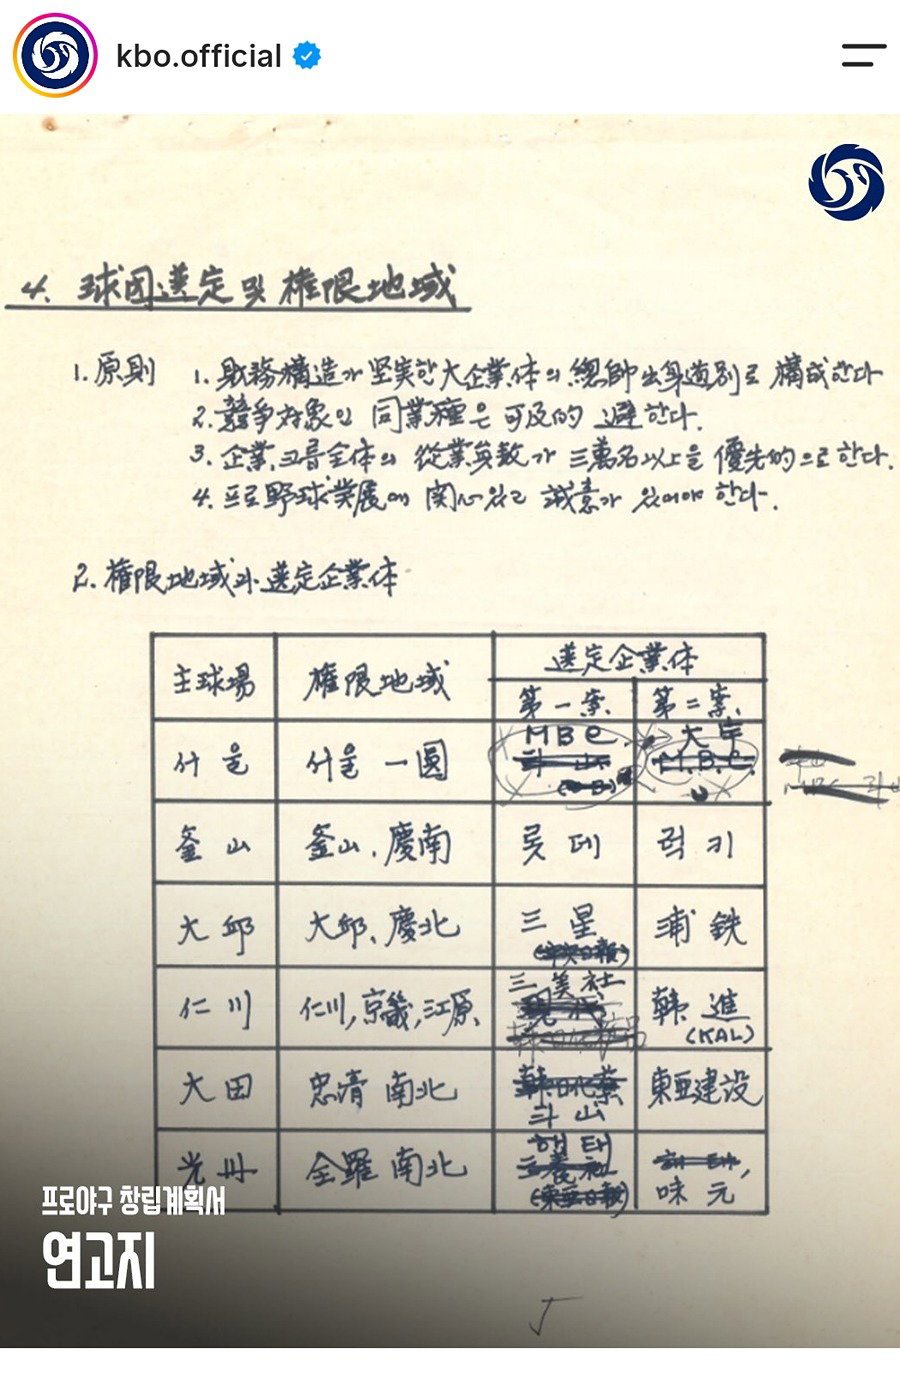 kbo.official
4. 球団選定 및 權限地域
1. 原則 1. 財務構造가 堅実한 大企業体의 總帥 出身道別로 構成한다
2. 競争対象인 同業種은 可及的 避한다.
3. 企業, 그룹全体의 從業員數가 三萬名以上을 優先的으로 한다.
4. 프로野球発展에 関心있고 誠意가 있어야 한다.
2. 權限地域과 選定企業体
主球場 權限地域 選定企業体
第一案 第二案
서울 서울 一圓 MBC 大宇
斗山 M.B.C.
釜山 釜山, 慶南 롯데 럭키
大邱 大邱, 慶北 三星 浦鉄
(中央日報)
仁川 仁川, 京畿, 江原 三美社 韓進
現代 (KAL)
大田 忠清 南北 東亜建設
斗山
光州 全羅 南北 해태 해태,
三養社 味元
(東亜日報)
프로야구 창립계획서
연고지